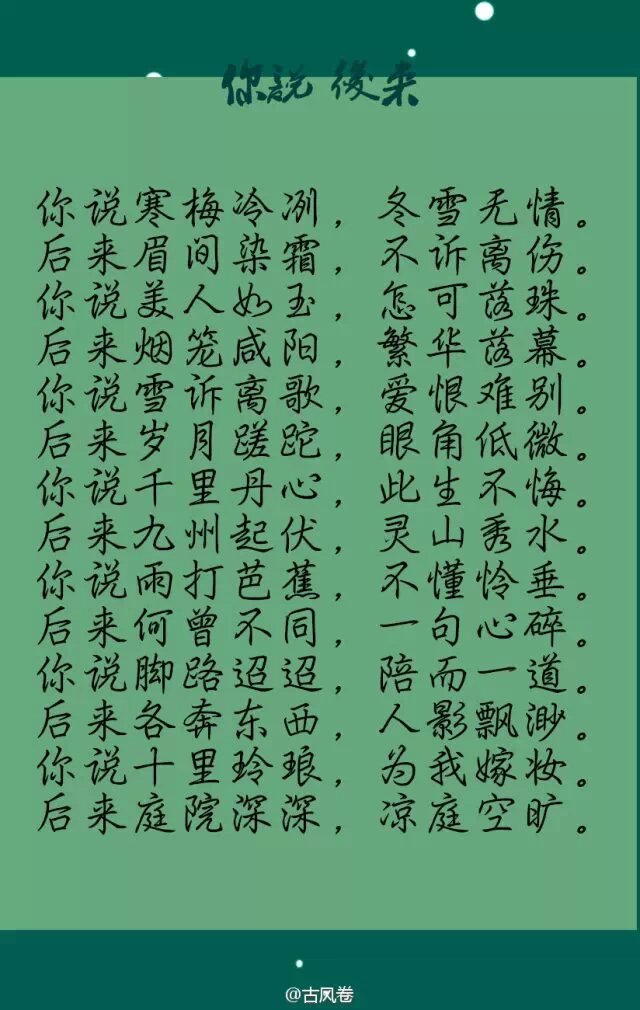 你說 後来
你说寒梅冷冽，冬雪无情。
后来眉间染霜，不诉离伤。
你说美人如玉，怎可落珠。
后来烟笼咸阳，繁华落幕。
你说雪诉离歌，爱恨难别。
后来岁月蹉跎，眼角低微。
你说千里丹心，此生不悔。
后来九州起伏，灵山秀水。
你说雨打芭蕉，不懂怜垂。
后来何曾不同，一句心碎。
你说脚路迢迢，陪而一道。
后来各奔东西，人影飘渺。
你说十里玲琅，为我嫁妆。
后来庭院深深，凉庭空旷。
@古风卷